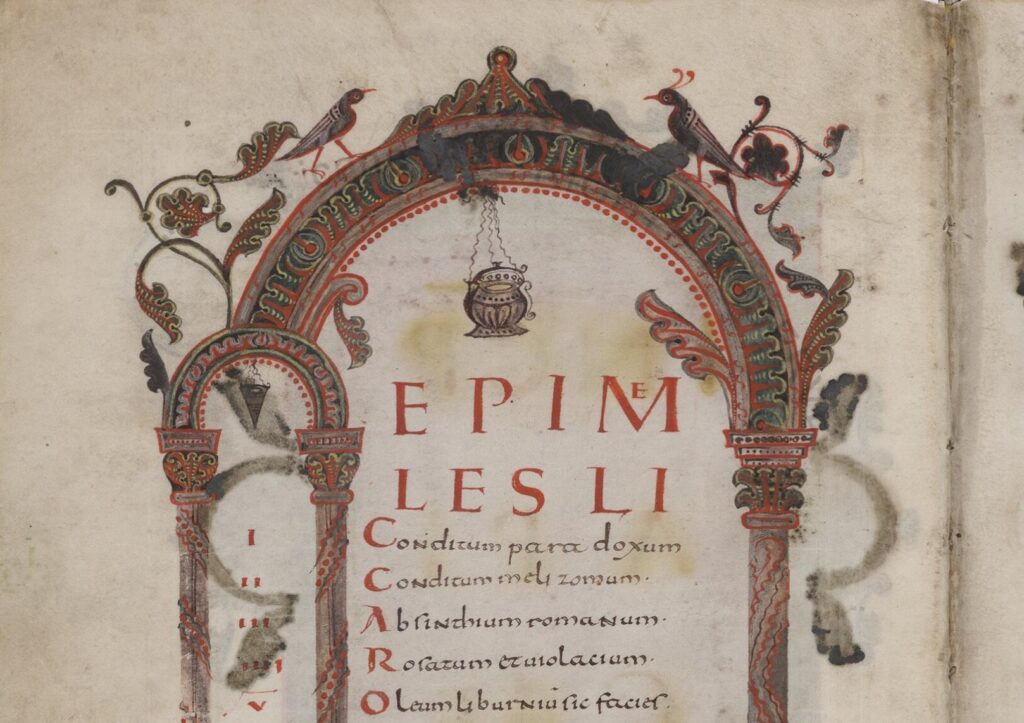 EPIMEƎ
LES LI
I Conditum paradoxum
II Conditum meli zomum·
III Absinthium romanum·
IIII Rosatum et uiolacium·
V Oleum liburniū sic facies·